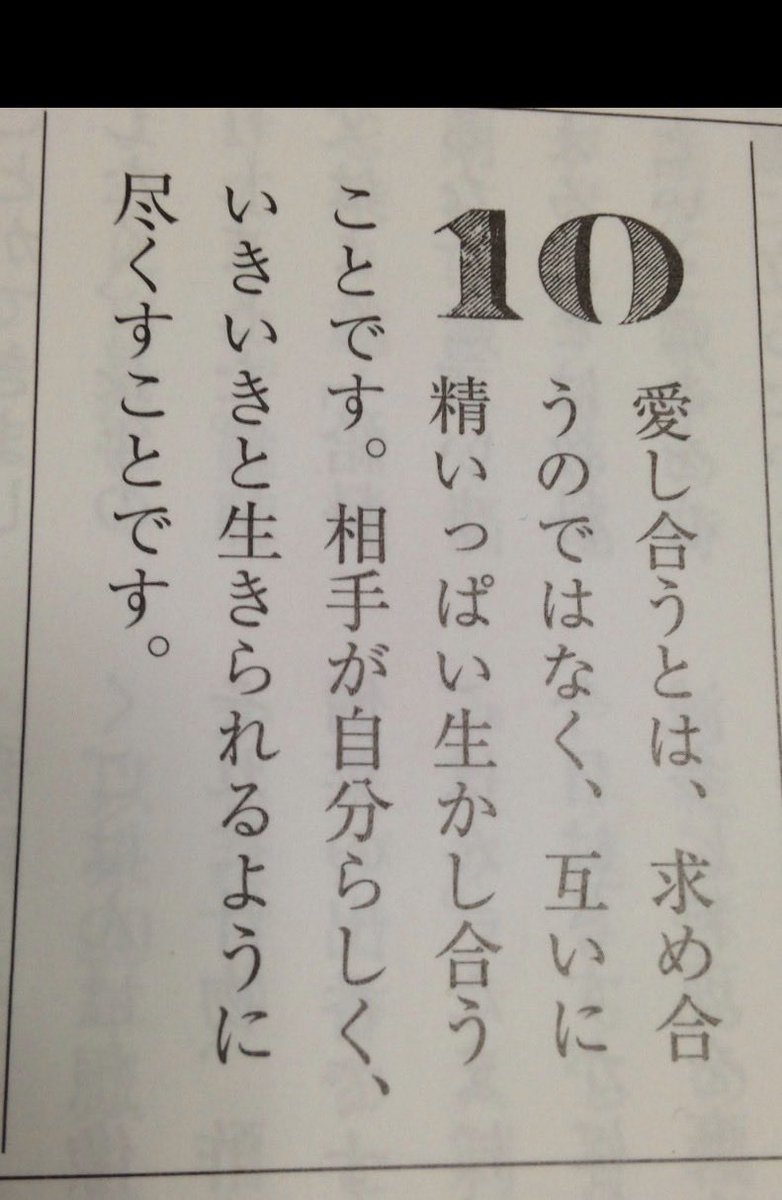 10
愛し合うとは、求め合
うのではなく、互いに
精いっぱい生かし合う
ことです。相手が自分らしく、
いきいきと生きられるように
尽くすことです。